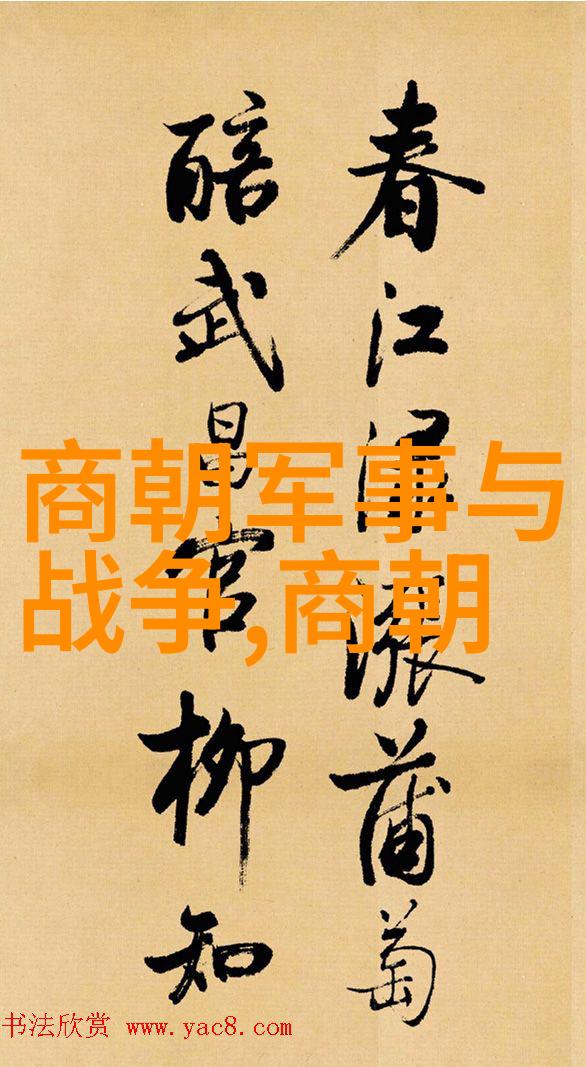 春江渌漲蒲萄
醅武昌官柳知
商朝军事与
战争,商朝
书法欣赏 www.yac8.com